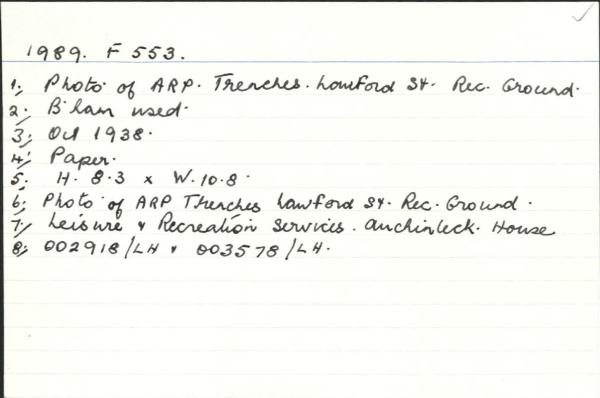 1989. F 553.
1; Photo of ARP. Trenches. Lawford St. Rec. Ground.
2; B'ham used.
3; Oct 1938.
4; Paper.
5; H. 8.3 x W. 10.8.
6; Photo of ARP Trenches Lawford St. Rec. Ground.
7; Leisure & Recreation Services. Auchinleck. House
8; 002918/LH & 003578/LH.